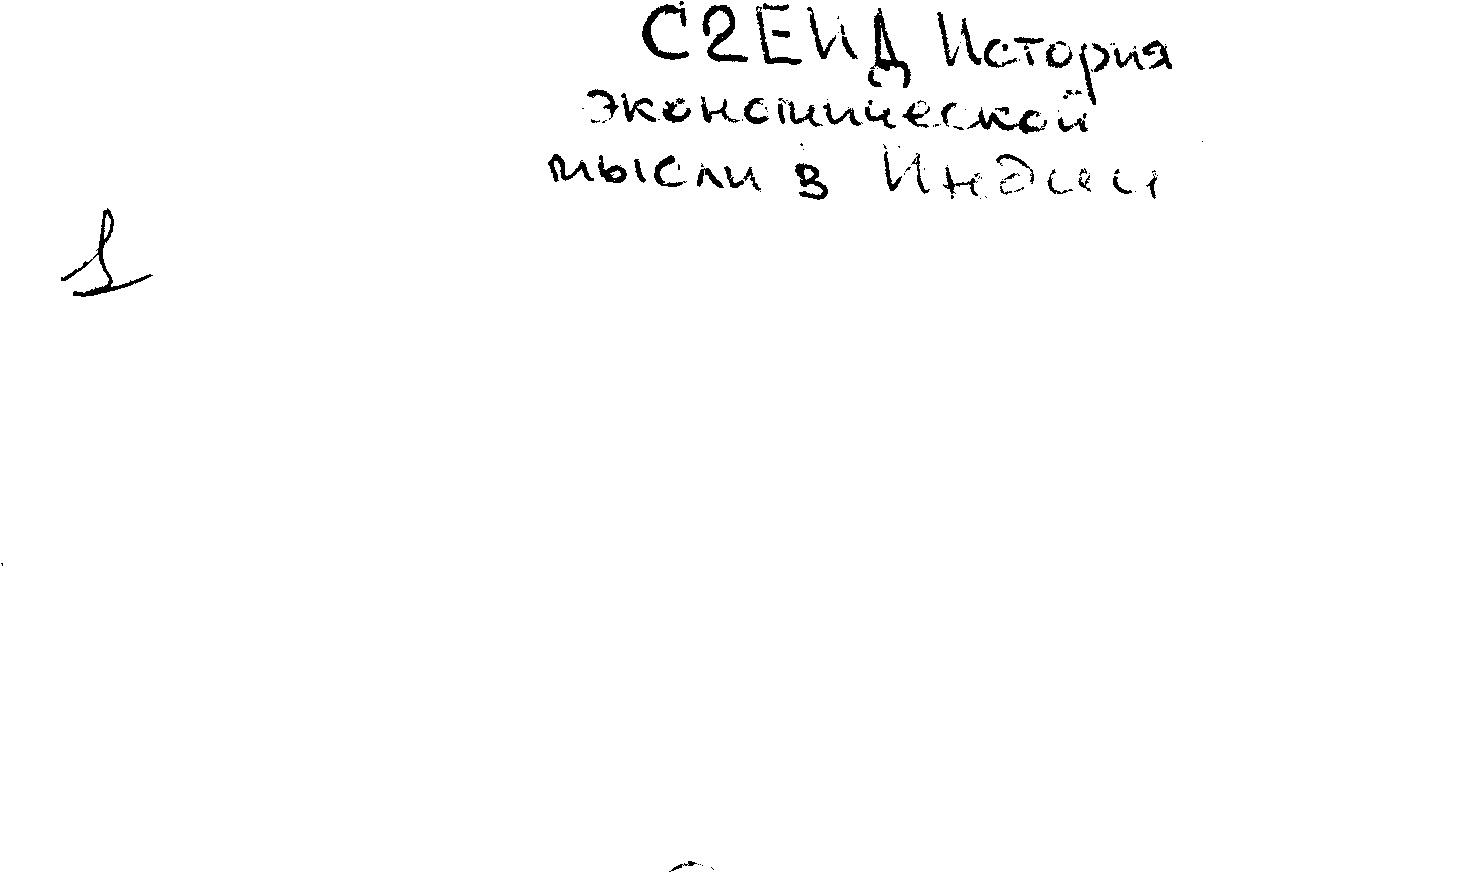 С2ЕИД История
экономической
мысли в Индии
1